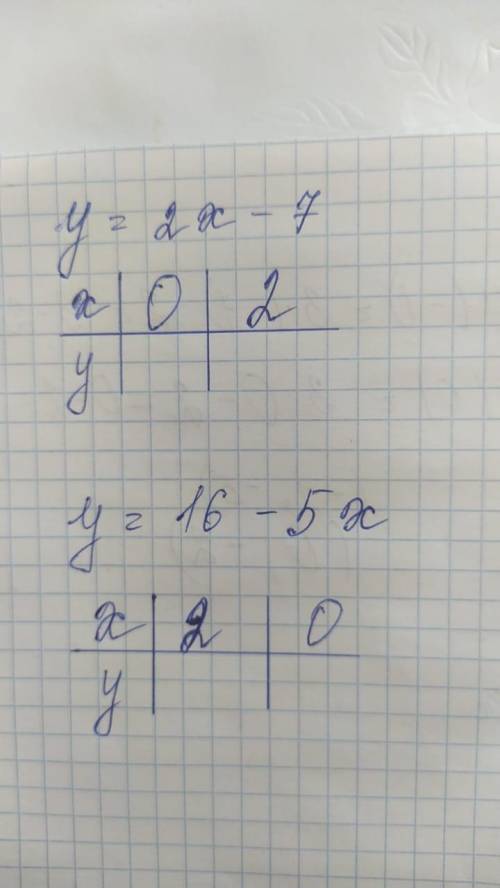 y = 2x - 7
x 0 2
y
y = 16 - 5x
x 2 0
y